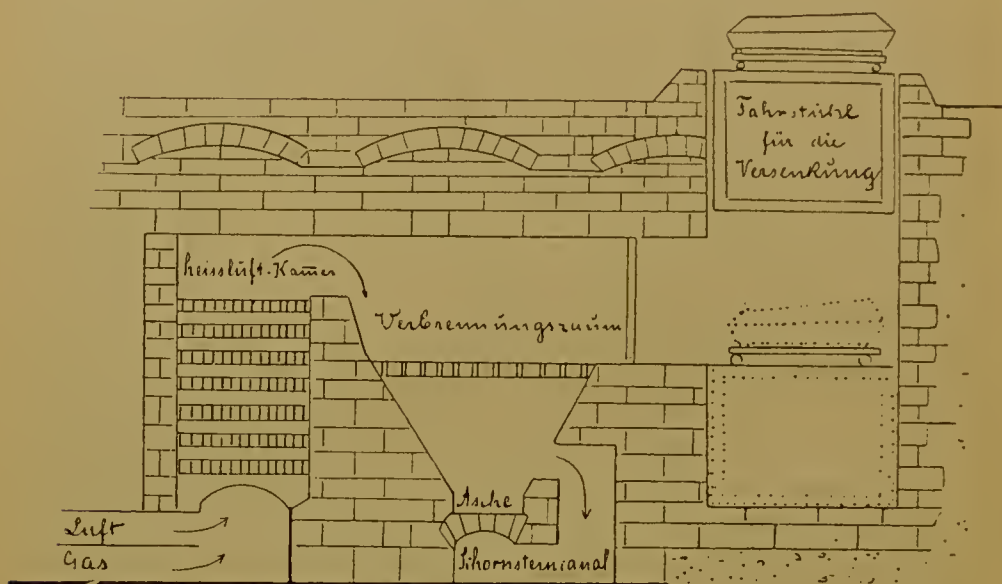 Fahrstuhl
für die
Versenkung
heissluft-Kamer
Verbrennungsraum
Asche
Luft
Gas
Schornsteincanal